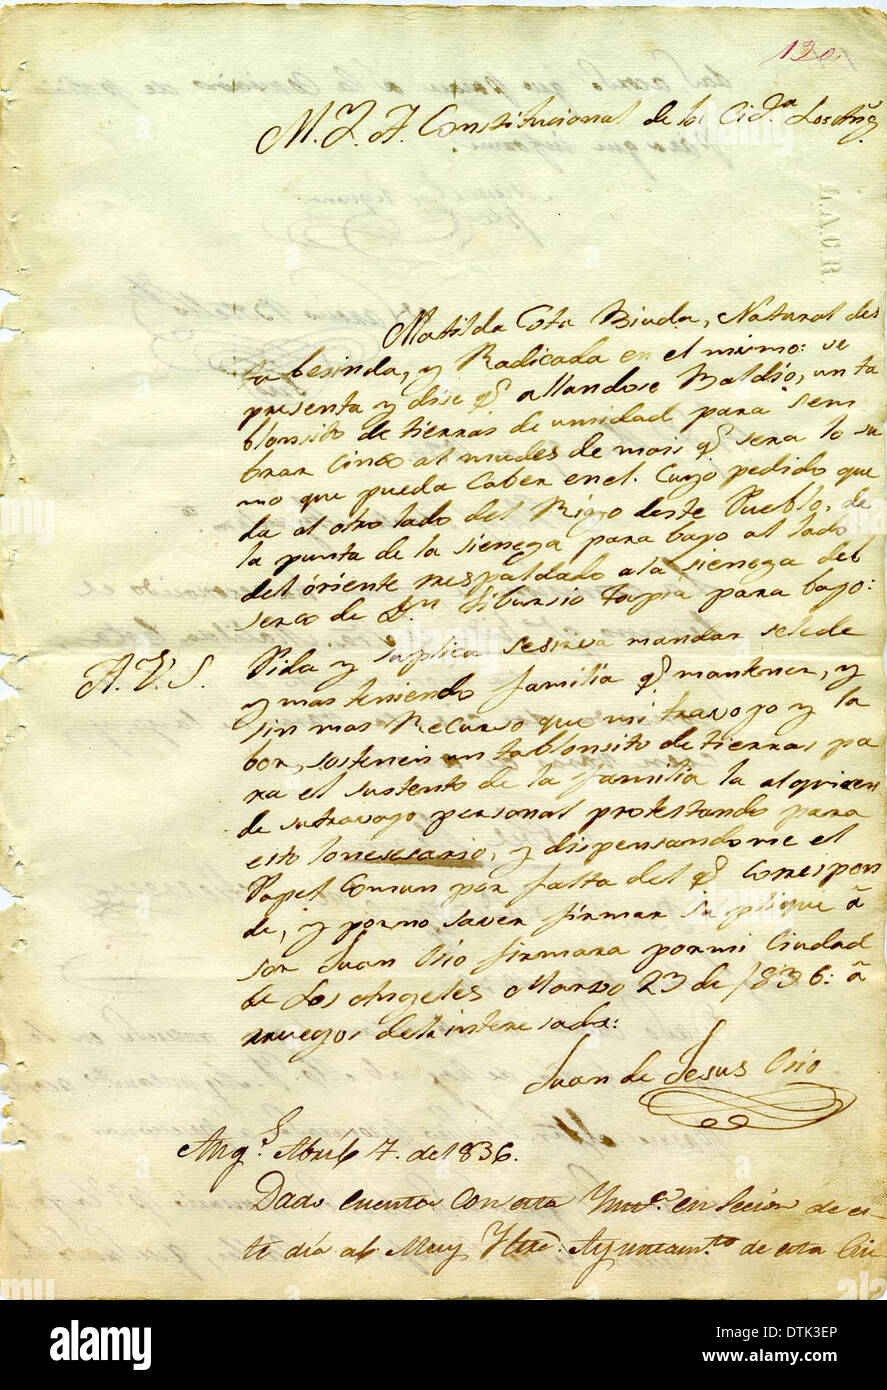 120.
M. Y. A. Constitucional de la Cid.a Los Ang.s
L.A.C.R.
Matilda Cota Biuda, Natural des
ta besinda, y Radicada en el mismo: se
presenta y dise q.e allandose Baldio, un ta
blonsito de tierras de unidad para sem
brar Cinco almudes de mais q.e sera lo su
mo que pueda Caber en el. Cuyo pedido que
da al otro lado del Rigo deste Pueblo, de
la punta de la sienega para bajo al lado
del oriente respaldado a la sienega del
serco de D.n Tibursio Tapia para bajo:
A. V. S. Pida y suplica sesirva mandar selede
y mas teniendo familia q.e mantener, y
sin mas Recurso que mi travajo y la
bor, sostener un tablonsito de tierras pa
ra el sustento de la familia la alquieren
de sutravajo personal protestando para
esto lonesesario, y dispensandome el
Papel Comun por falta del q.e Correspon
de, y porno saver firmar suplique á
sor Juan Osio firmara pormi Ciudad
de Los Angeles Marso 23 de 1836: á
rruegos dela interesada:
Juan de Jesus Osio
Ang.s Abril 7. de 1836.
Dado cuenta con esta en secion de es-
te dia al Muy Yltre. Ayuntam.to de esta Ciu
alamy
Image ID: DTK3EP
www.alamy.com